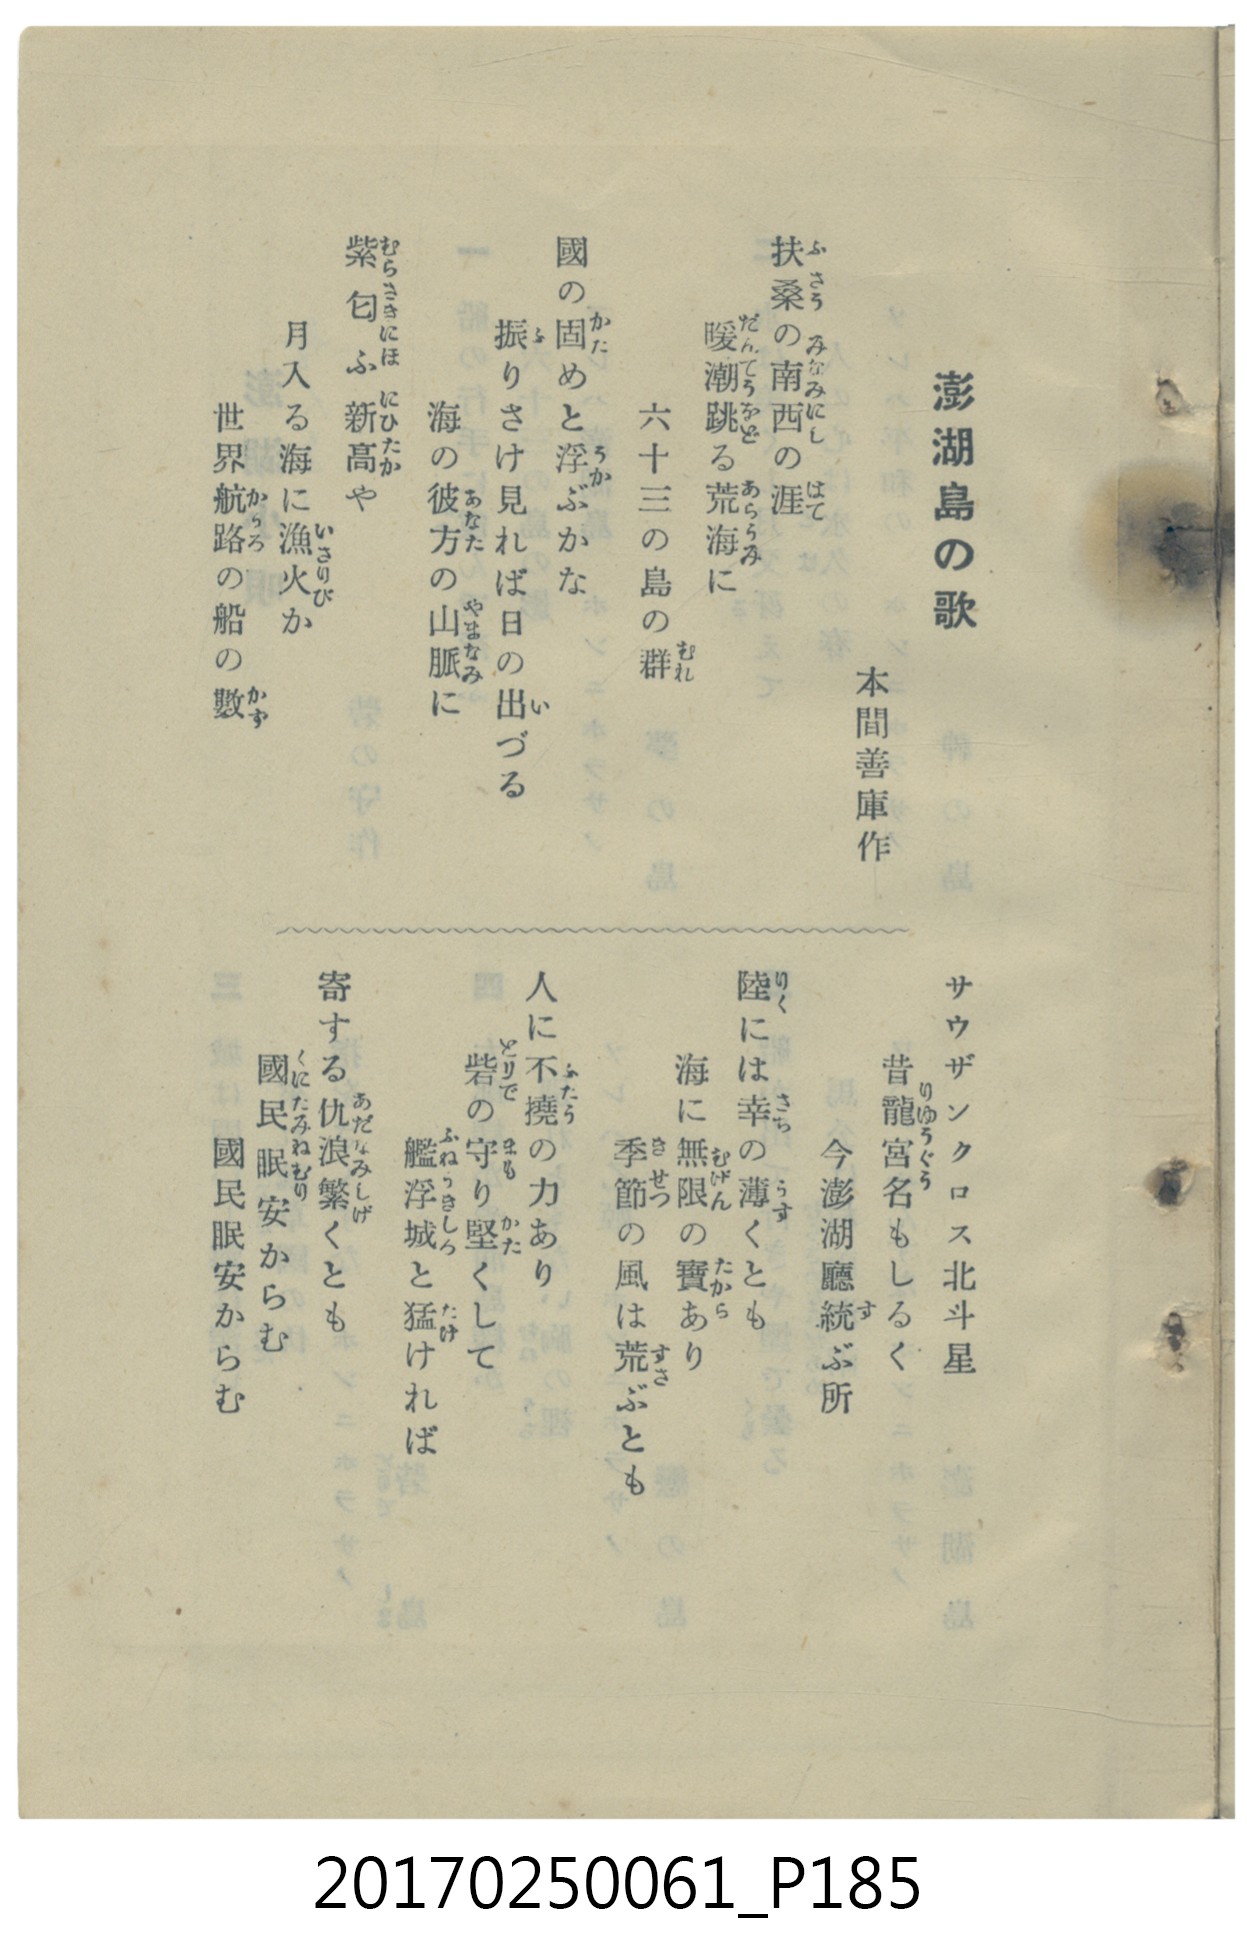 澎湖島の歌
本間善庫作
扶桑の南西の涯
暖潮跳る荒海に
六十三の島の群
國の固めと浮ぶかな
振りさけ見れば日の出づる
海の彼方の山脈に
紫匂ふ新高や
月入る海に漁火か
世界航路の船の數
サウザンクロス北斗星
昔龍宮名もしるく
今澎湖廳統ぶ所
陸には幸の薄くとも
海に無限の寶あり
季節の風は荒ぶとも
人に不撓の力あり
砦の守り堅くして
艦浮城と猛ければ
寄する仇浪繁くとも
國民眠安からむ
國民眠安からむ
20170250061_P185